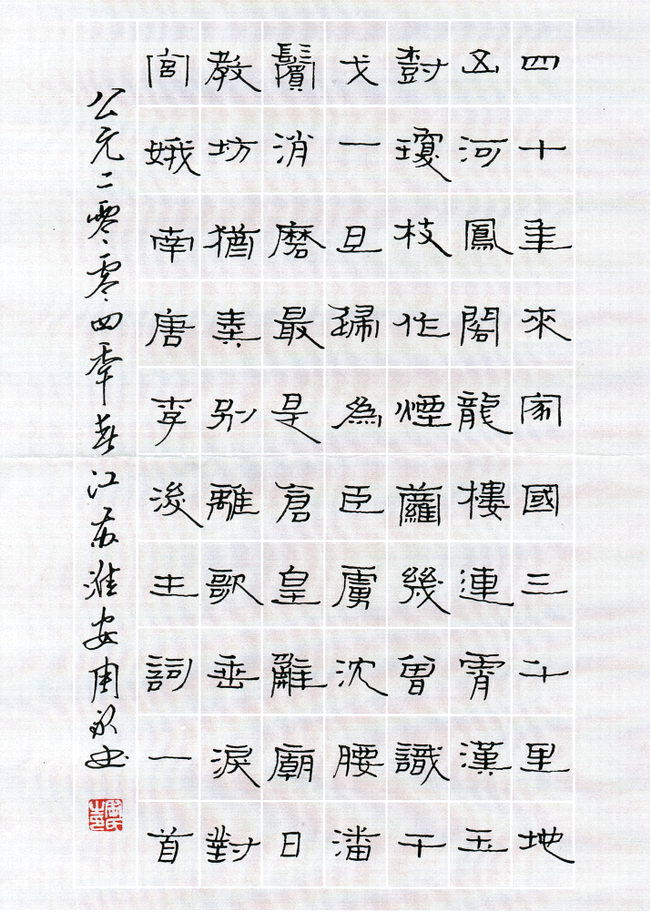 四十年來家國三千里地
山河鳳閣龍樓連霄漢玉
樹瓊枝作煙蘿幾曾識干
戈一旦歸為臣虜沈腰潘
鬢消磨最是倉皇辭廟日
教坊猶奏別離歌垂淚對
宮娥南唐李後主詞一首
公元二零零四年春江蘇淮安周永书